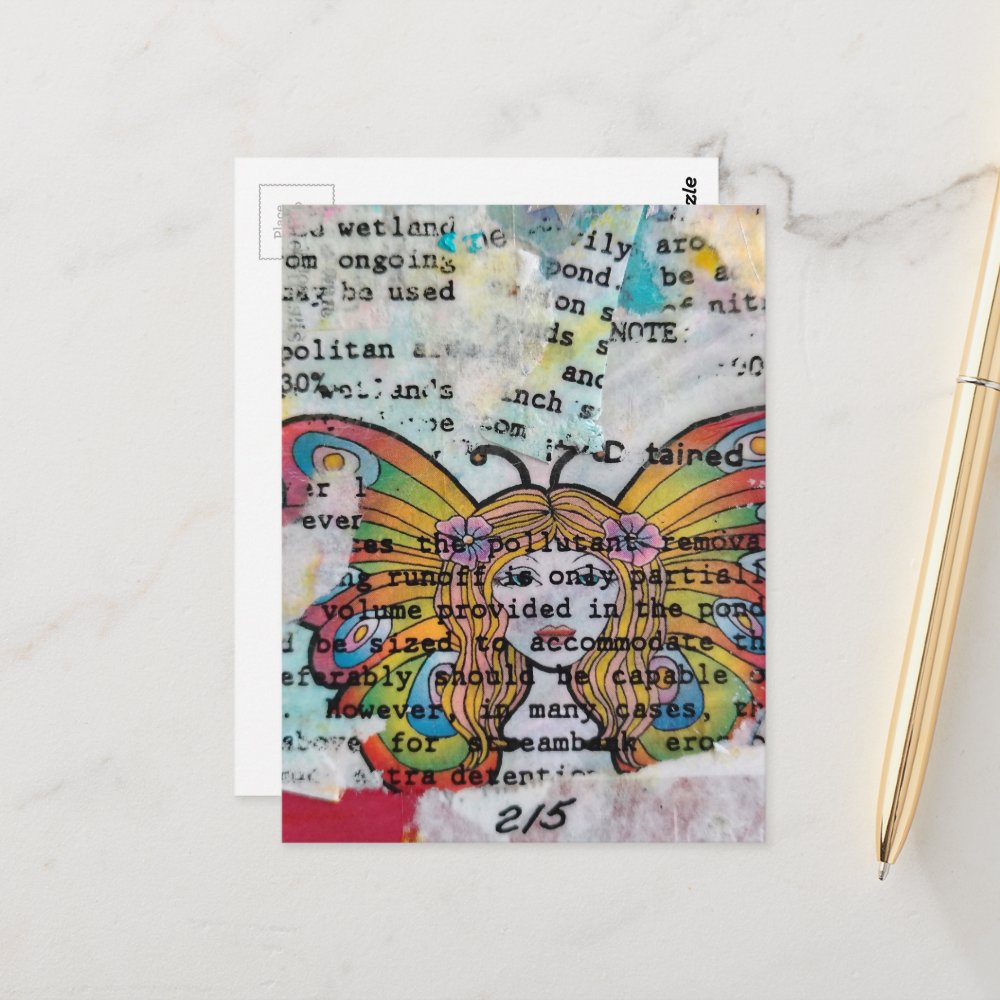 Place
zzle
wetland
ily aro
om ongoing
pond be a
may be used
on s
nitr
NOTE:
politan a
ds s
30%
and
inch s
be com
tained
er l
ever
es the pollutant remova
ng runoff is only partiall
volume provided in the pond
d be sized to accommodate th
eferably should be capable o
. However, in many cases, th
above for streambank ero
tra detentio
215